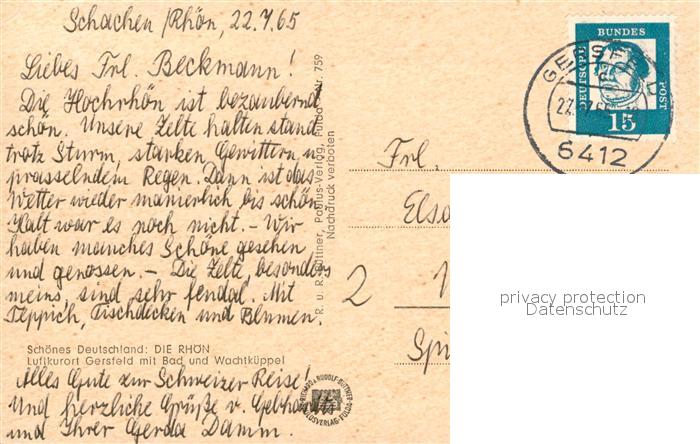 Schachen /Rhön, 22.7.65
Liebes Frl. Beckmann!
Die Hochrhön ist bezaubernd
schön. Unsere Zelte halten stand
trotz Sturm, starken Gewittern u.
prasselndem Regen. Dann ist das
Wetter wieder manierlich bis schön.
Kalt war es noch nicht. – Wir
haben manches Schöne gesehen
und genossen. – Die Zelte, besonders
meins, sind sehr feudal. Mit
Teppich, Tischdecken und Blumen.
Schönes Deutschland: DIE RHÖN
Luftkurort Gersfeld mit Bad und Wachtküppel
Alles Gute zur Schweizer Reise!
Und herzliche Grüße v.
und Ihrer Gerda Damm.
R. u. R. Büttner, Paulus-Verlag, Fulda Nr. 759
Nachdruck verboten
DEUTSCHE
BUNDES
POST
15
6412
Frl.
2
privacy protection
Datenschutz